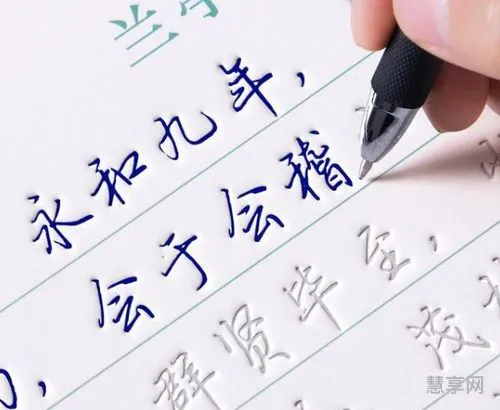 兰
永和九年，
，会于会稽
群贤毕至，
茂
慧享网